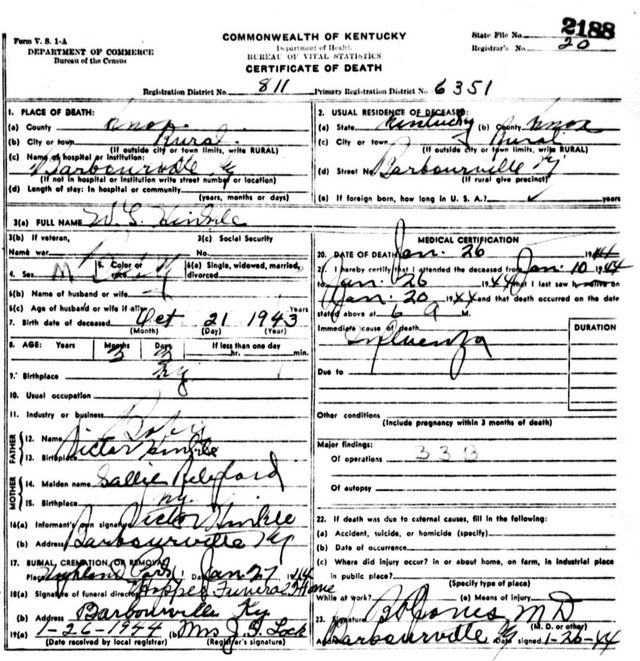 Form V. S. 1-A
DEPARTMENT OF COMMERCE
Bureau of the Census
COMMONWEALTH OF KENTUCKY
Department of Health
BUREAU OF VITAL STATISTICS
CERTIFICATE OF DEATH
State File No. 2188
Registrar's No. 20
Registration District No. 811 Primary Registration District No. 6351
1. PLACE OF DEATH:
(a) County Knox
(b) City or town Rural
(If outside city or town limits, write RURAL)
(c) Name of hospital or institution:
Barbourville Ky
(If not in hospital or institution write street number or location)
(d) Length of stay: In hospital or community
(years, months or days)
2. USUAL RESIDENCE OF DECEASED:
(a) State Kentucky (b) County Knox
(c) City or town Rural
(If outside city or town limits, write RURAL)
(d) Street No. Barbourville Ky
(If rural give precinct)
(e) If foreign born, how long in U. S. A.? years
3(a) FULL NAME W. S. Hinkle
3(b) If veteran,
Name war
3(c) Social Security
No.
4. Sex M 5. Color or race 6(a) Single, widowed, married, divorced
6(b) Name of husband or wife
6(c) Age of husband or wife if alive
7. Birth date of deceased Oct 21 1943
(Month) (Day) (Year)
8. AGE: Years Months Days If less than one day
3 hr. min.
9. Birthplace Ky
10. Usual occupation
11. Industry or business Baby
FATHER
12. Name Victor Hinkle
13. Birthplace
MOTHER
14. Maiden name Sallie
15. Birthplace Ky.
16(a) Informant's own signature Victor Hinkle
(b) Address Barbourville Ky
17. BURIAL, CREMATION OR REMOVAL
Place Highland Park Date Jan 27 1944
18(a) Signature of funeral director Hopper Funeral Home
(b) Address Barbourville Ky
19(a) 1-26-1944 (b) Mrs J. S. Lock
(Date received by local registrar) (Registrar's signature)
MEDICAL CERTIFICATION
20. DATE OF DEATH Jan. 26 1944
21. I hereby certify that I attended the deceased from Jan 10 1944
to Jan 26 1944 that I last saw h alive on
Jan 20 1944 and that death occurred on the date
stated above at 6 a M.
Immediate cause of death
Influenza
DURATION
Due to
Other conditions
(Include pregnancy within 3 months of death)
Major findings:
Of operations 33B
Of autopsy
22. If death was due to external causes, fill in the following:
(a) Accident, suicide, or homicide (specify)
(b) Date of occurrence
(c) Where did injury occur? In or about home, on farm, in industrial place
in public place?
(Specify type of place)
While at work? (e) Means of injury
23. Signature Jones M D
(M. D. or other)
Address Barbourville Ky Date signed 1-26-44